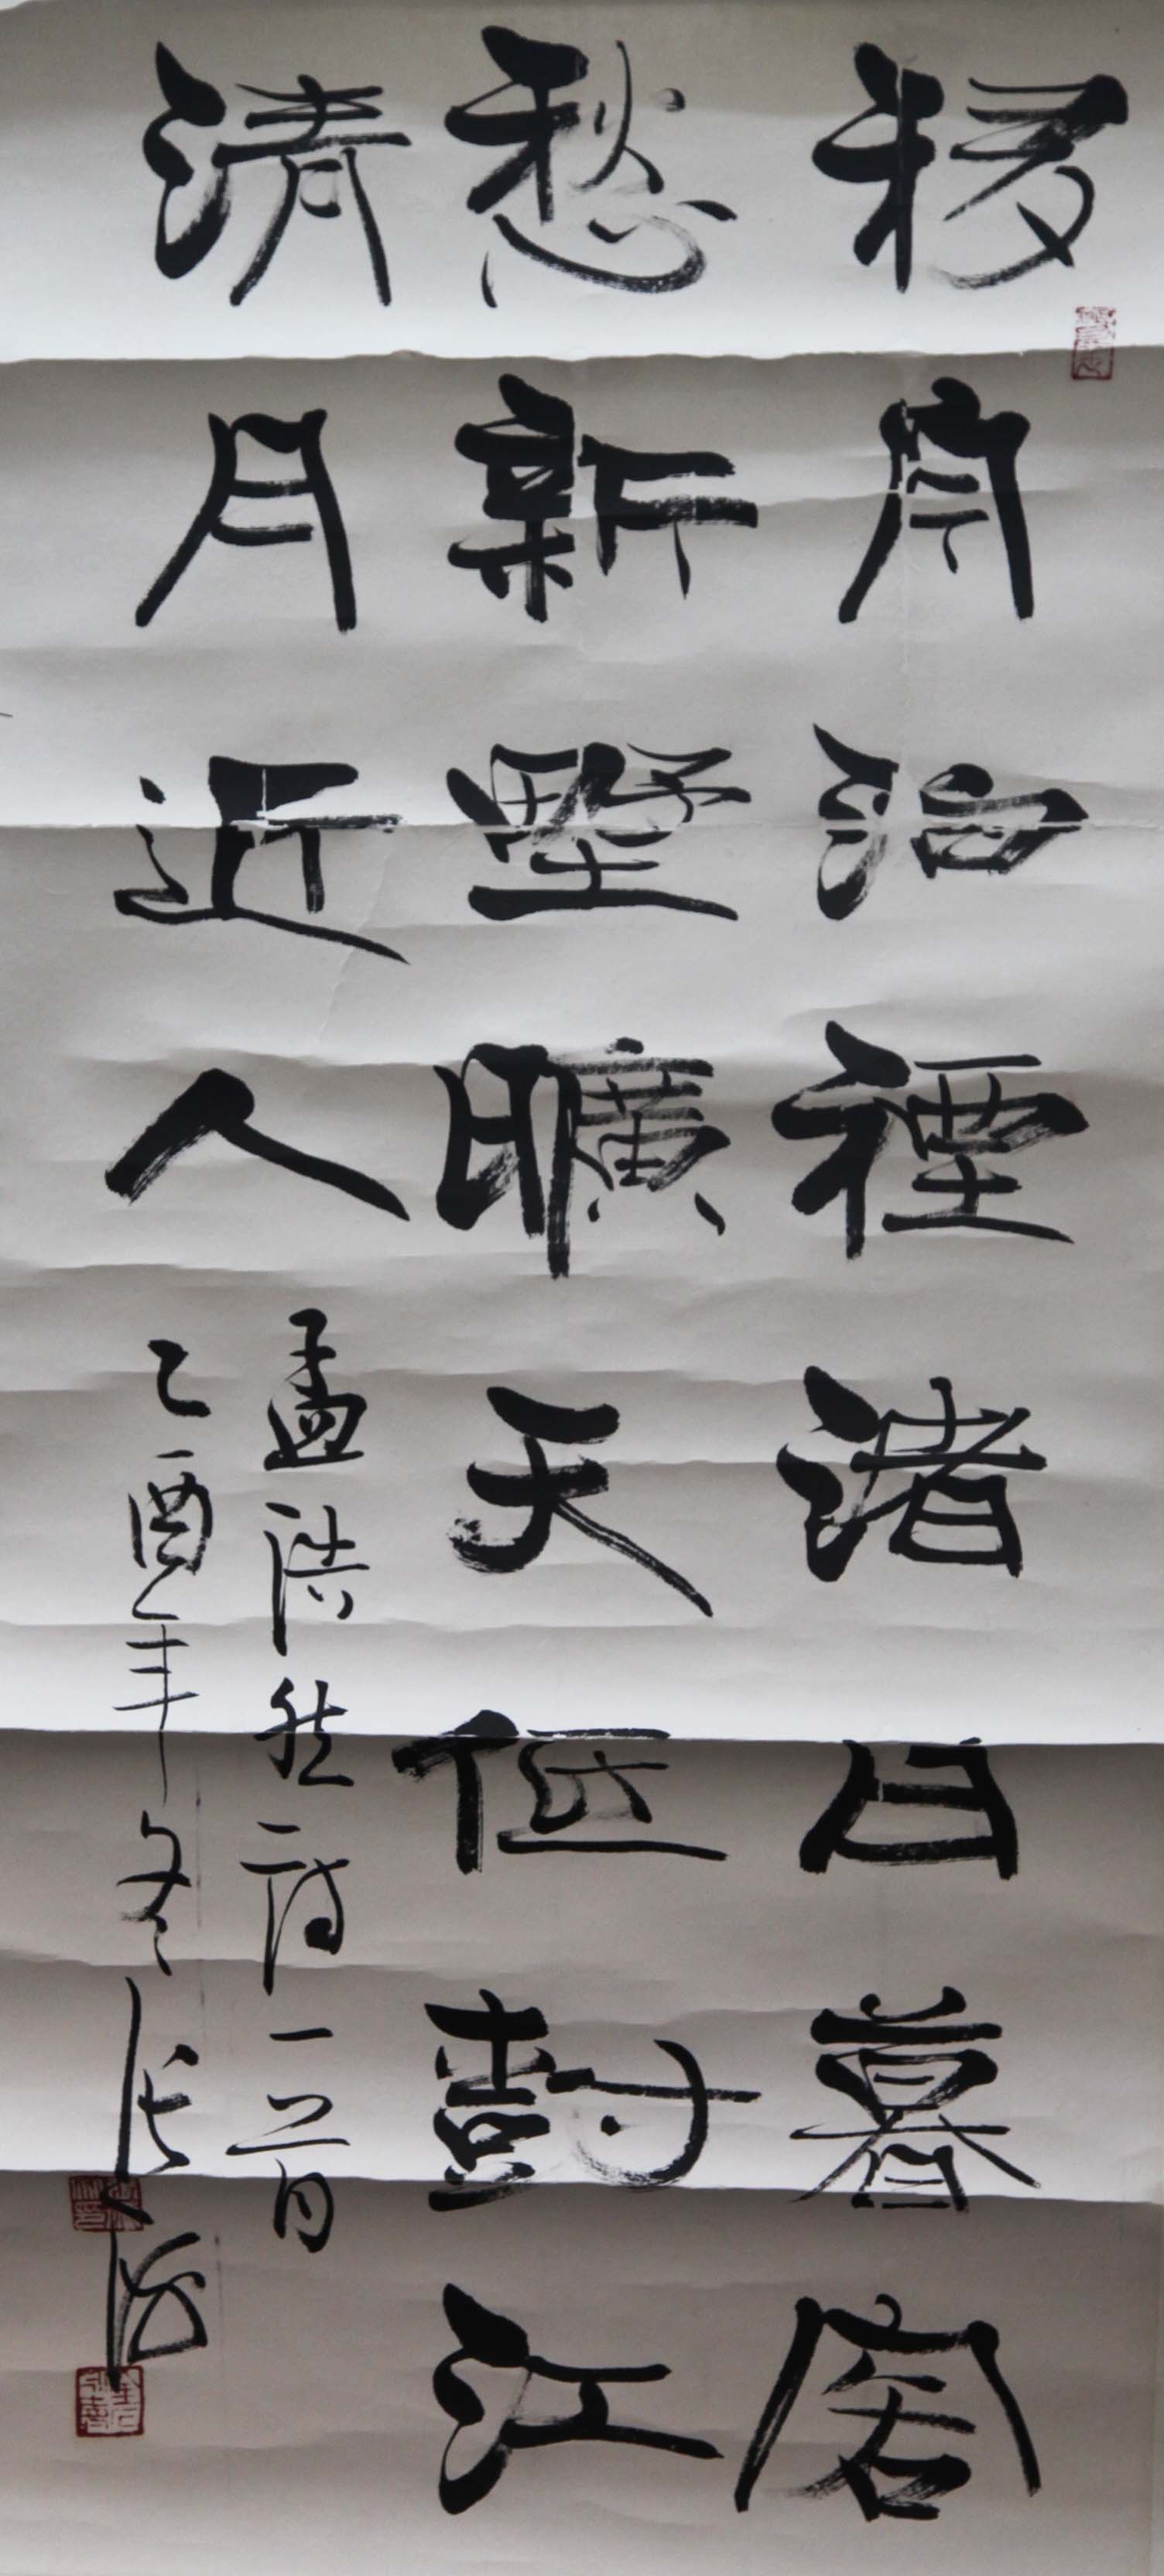 移舟泊煙渚日暮客
愁新野曠天低樹江
清月近人
孟浩然詩一首
乙酉年冬